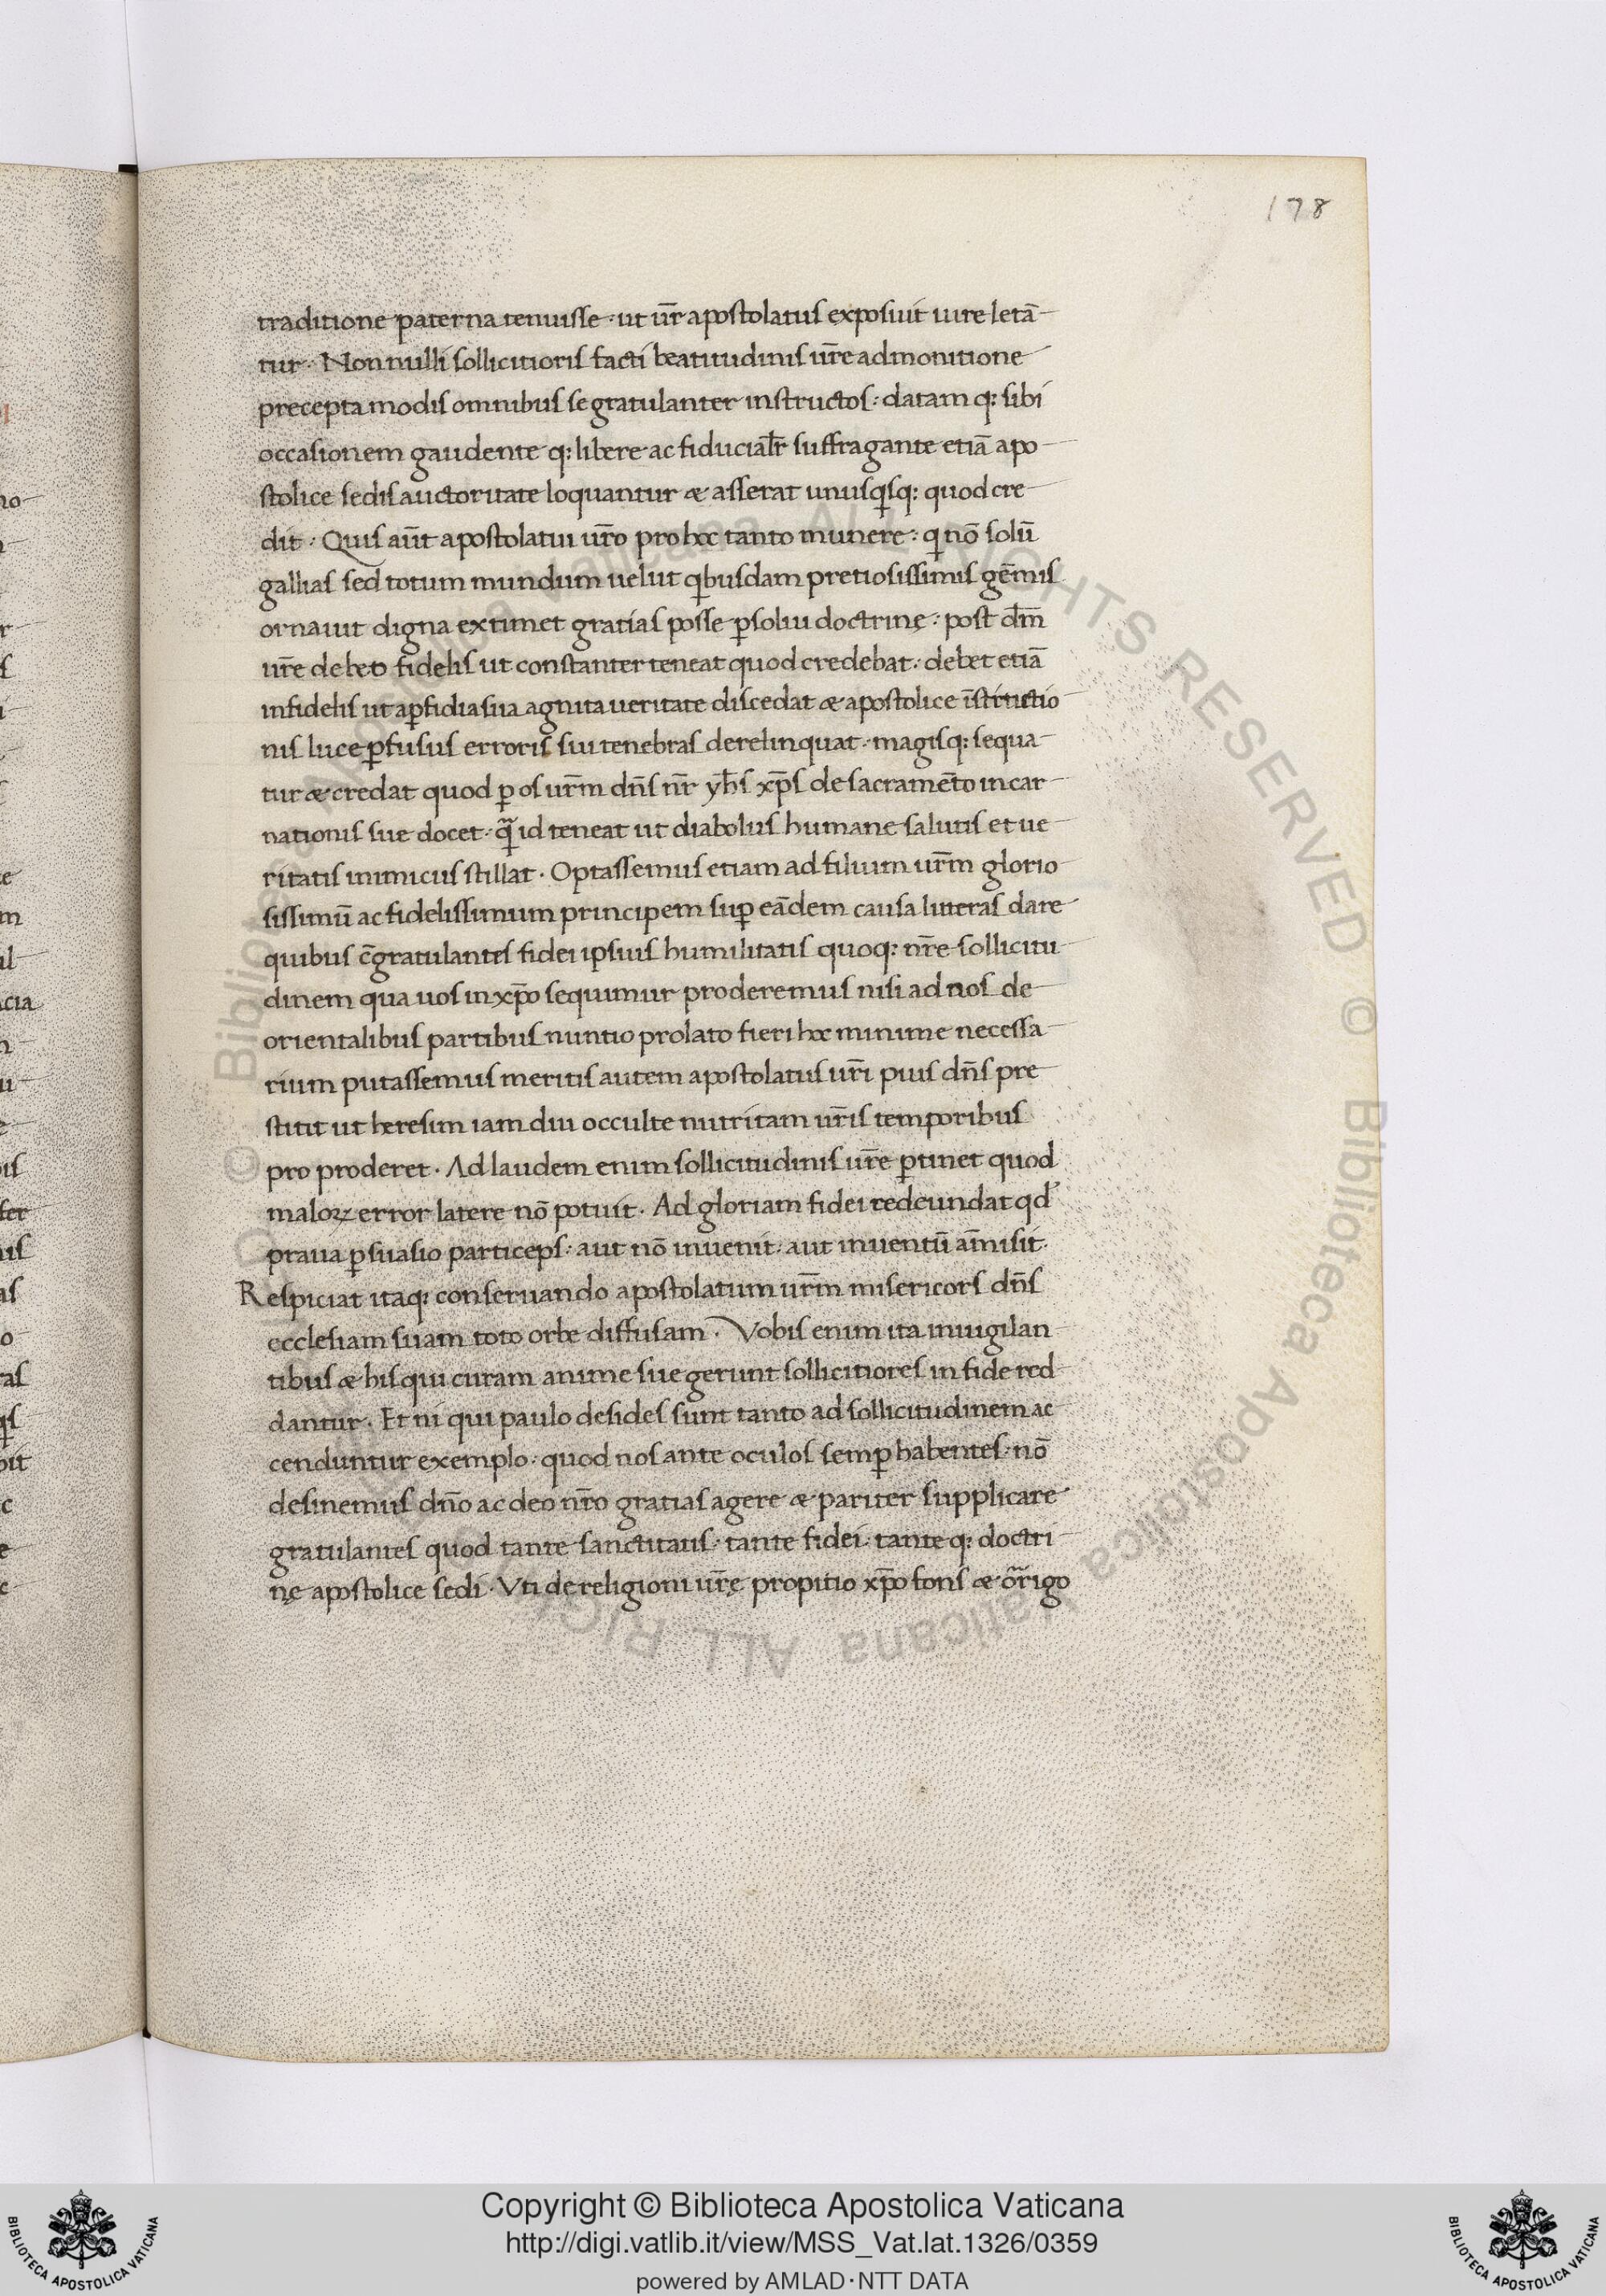 178
traditione paterna tenuisse · ut ur̄ apostolatus exposuit iure letā
tur · Non nulli sollicitioris facti beatitudinis ur̄e admonitione
precepta modis omnibus se gratulanter instructos : datam q: sibi
occasionem gaudente q: libere ac fiducialr̄ suffragante etiā apo
stolice sedis auctoritate loquantur & asserat unusqsq: quod cre
dit · Quis aūt apostolatui ur̄o pro hoc tanto munere : q nō solū
gallias sed totum mundum uelut qbusdam pretiosissimis gēmis
ornauit digna extimet gratias posse ꝑsolui doctrinę : post dm̄
ur̄e debeo fidelis ut constanter teneat quod credebat · debet etiā
infidelis ut a ꝑfidia sua agnita ueritate discedat & apostolice īstructio
nis luce ꝑfusus erroris sui tenebras derelinquat · magisq: sequa
tur & credat quod ꝑ os ur̄m dn̄s nr̄ yh̄s xp̄s de sacramēto incar
nationis sue docet · q̄ id teneat ut diabolus humane salutis et ue
ritatis inimicus stillat · Optassemus etiam ad filium ur̄m glorio
sissimū ac fidelissimum principem suꝑ eādem causa litteras dare
quibus c̄gratulantes fidei ipsius humilitatis quoq: nr̄e sollicitu
dinem qua uos in xp̄o sequimur proderemus nisi ad nos de
orientalibus partibus nuntio prolato fieri hoc minime necessa
rium putassemus meritis autem apostolatus ur̄i pius dn̄s pre
stitit ut heresim iam diu occulte nutritam ur̄is temporibus
pro proderet · Ad laudem enim sollicitudinis ur̄e ꝑtinet quod
maloꝝ error latere nō potuit · Ad gloriam fidei redeundat qd
praua ꝑsuasio particeps : aut nō inuenit · aut inuentū am̄isit ·
Respiciat itaq: conseruando apostolatum ur̄m misericors dn̄s
ecclesiam suam toto orbe diffusam · Vobis enim ita inuigilan
tibus & his qui curam anime sue gerunt sollicitiores in fide red
dantur · Et ni qui paulo desides sunt tanto ad sollicitudinem ac
cenduntur exemplo · quod nos ante oculos semꝑ habentes · nō
desinemus dn̄o ac deo nr̄o gratias agere & pariter supplicare
gratulantes quod tante sanctitatis · tante fidei · tante q: doctri
nę apostolice sedi · Vti de religioni ur̄ę propitio xp̄o fons & or̄igo
Copyright © Biblioteca Apostolica Vaticana
http://digi.vatlib.it/view/MSS_Vat.lat.1326/0359
powered by AMLAD·NTT DATA